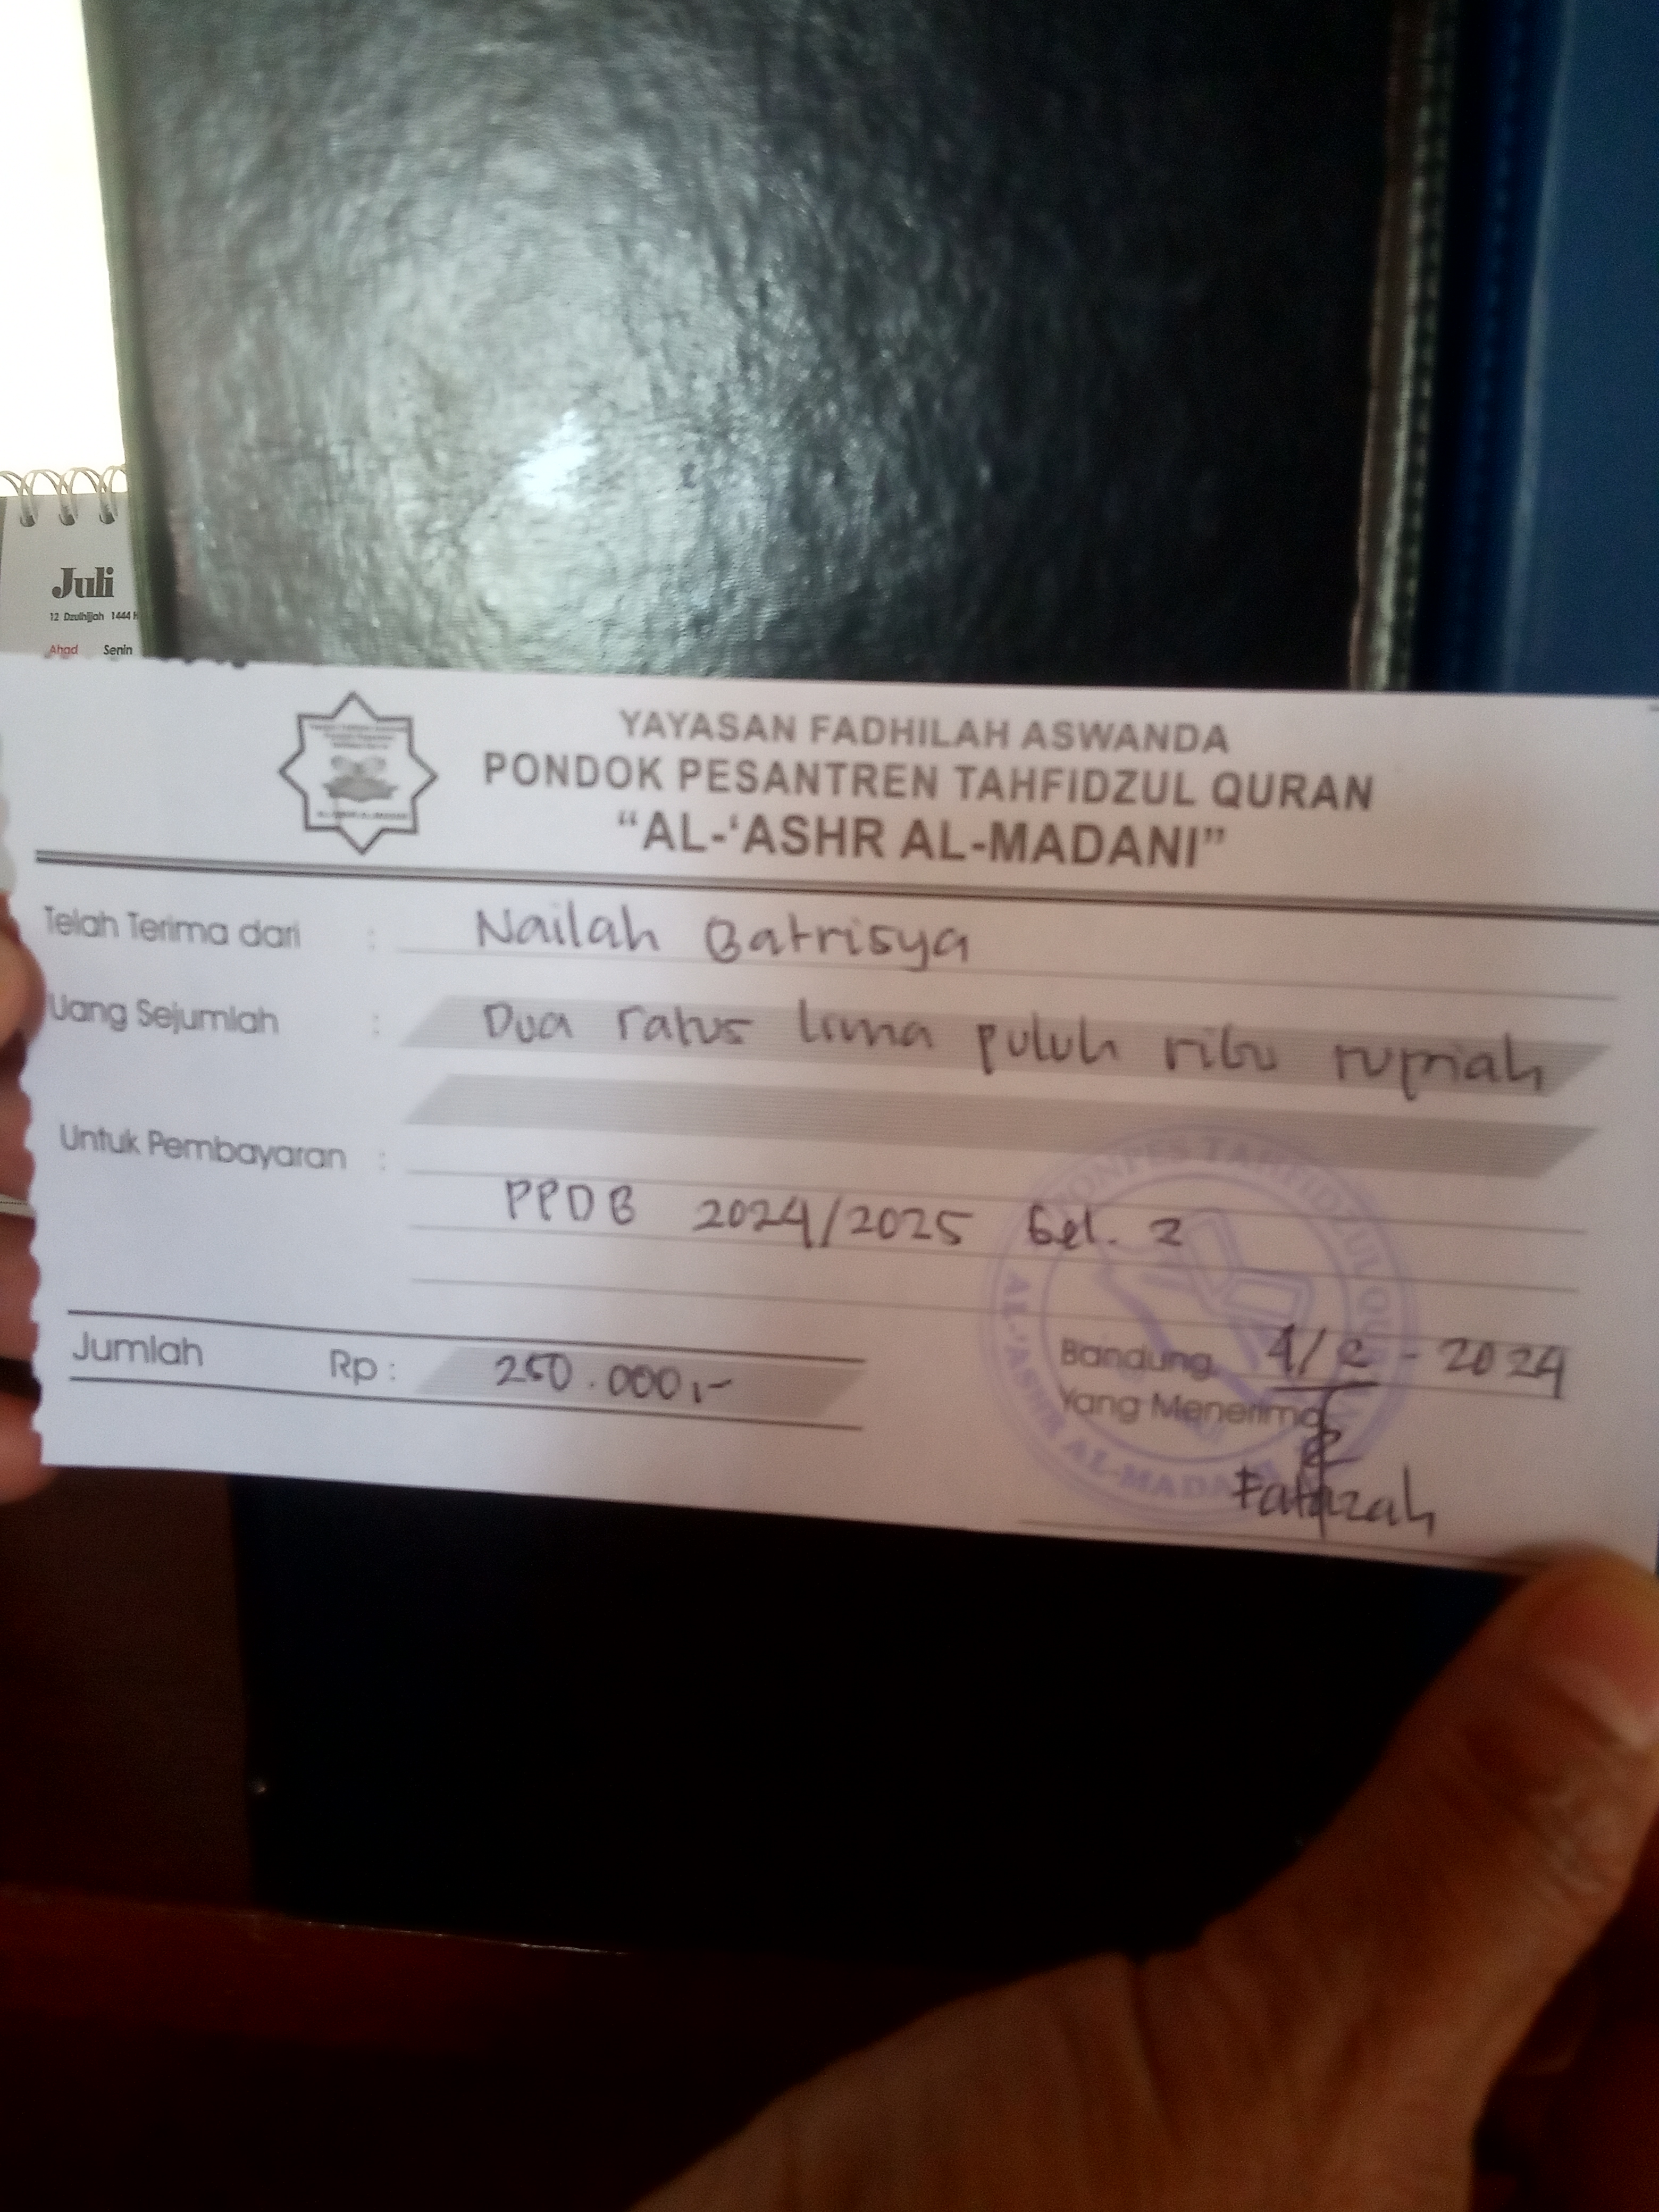 Juli
12 Dzulhijjah 1444 H
Ahad Senin
YAYASAN FADHILAH ASWANDA
PONDOK PESANTREN TAHFIDZUL QURAN
“AL-‘ASHR AL-MADANI”
Telah Terima dari : Nailah Batrisya
Uang Sejumlah : Dua ratus lima puluh ribu rupiah
Untuk Pembayaran :
PPDB 2024/2025 Gel. 2
Jumlah Rp : 250.000,-
Bandung, 4/2 - 2024
Yang Menerima
PONPES TAHFIDZUL QURAN
AL-'ASHR AL-MADANI